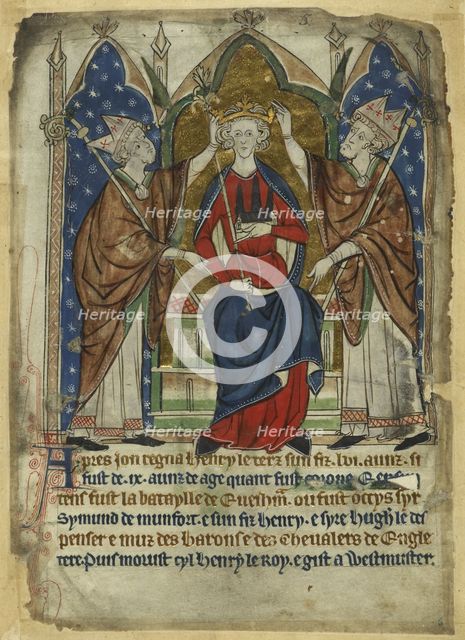 Heritage
5
Heritage Heritage
Heritage Heritage
Heritage Heritage
©
Apres Jon regna Henry le terz sun fiz .lvi. aunz. si
fust de .ix. aunz de age quant fust corone
tens fust la bataylle de Euesham ou fust occys syr
Symund de munfort. e sun fiz Henry. e syre Hugh le des
penser e muz des barons e des chevalers de Engle
tere. Puis morust cyl Henry le Roy. e gist a Westmuster.
Heritage